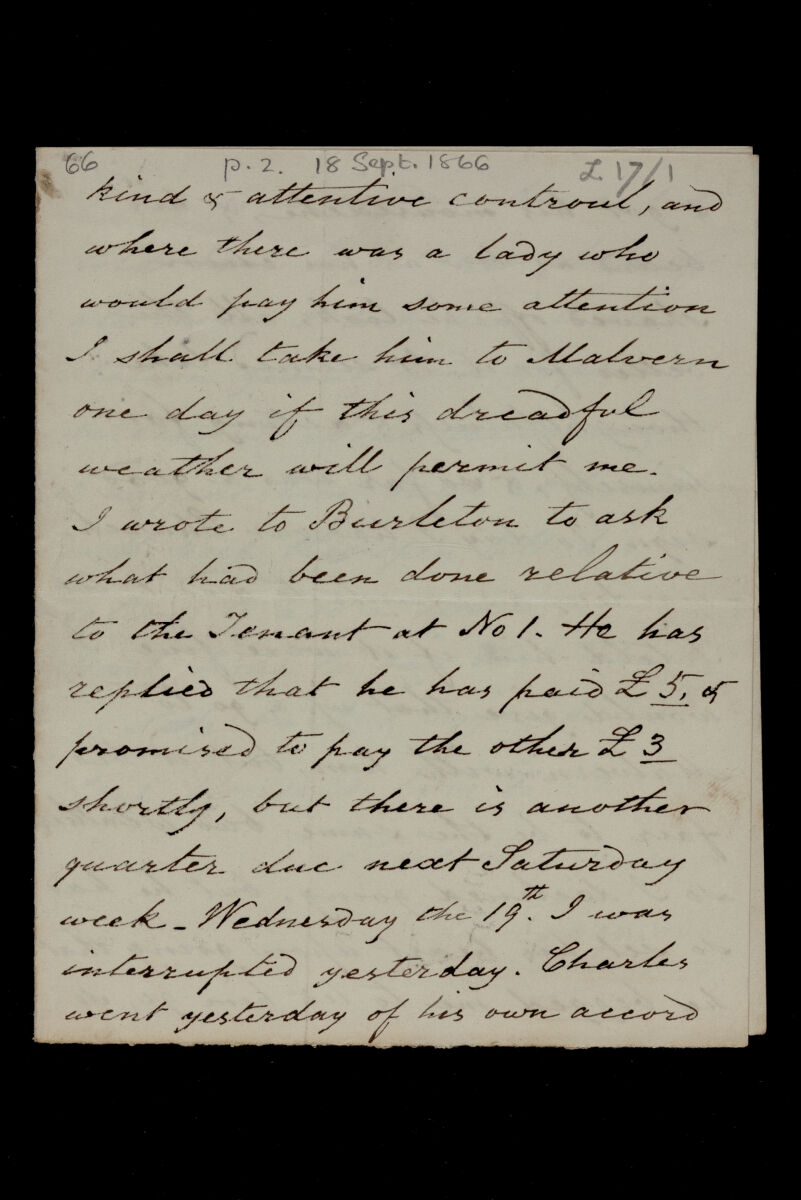 66 p. 2. 18 Sept. 1866 L.17/1
kind & attentive controul, and
where there was a lady who
would pay him some attention
I shall take him to Malvern
one day if this dreadful
weather will permit me.
I wrote to Burleton to ask
what had been done relative
to the Tenant at No 1. He has
replied that he has paid £5, &
promised to pay the other £3
shortly, but there is another
quarter due next Saturday
week - Wednesday the 19th. I was
interrupted yesterday. Charles
went yesterday of his own accord